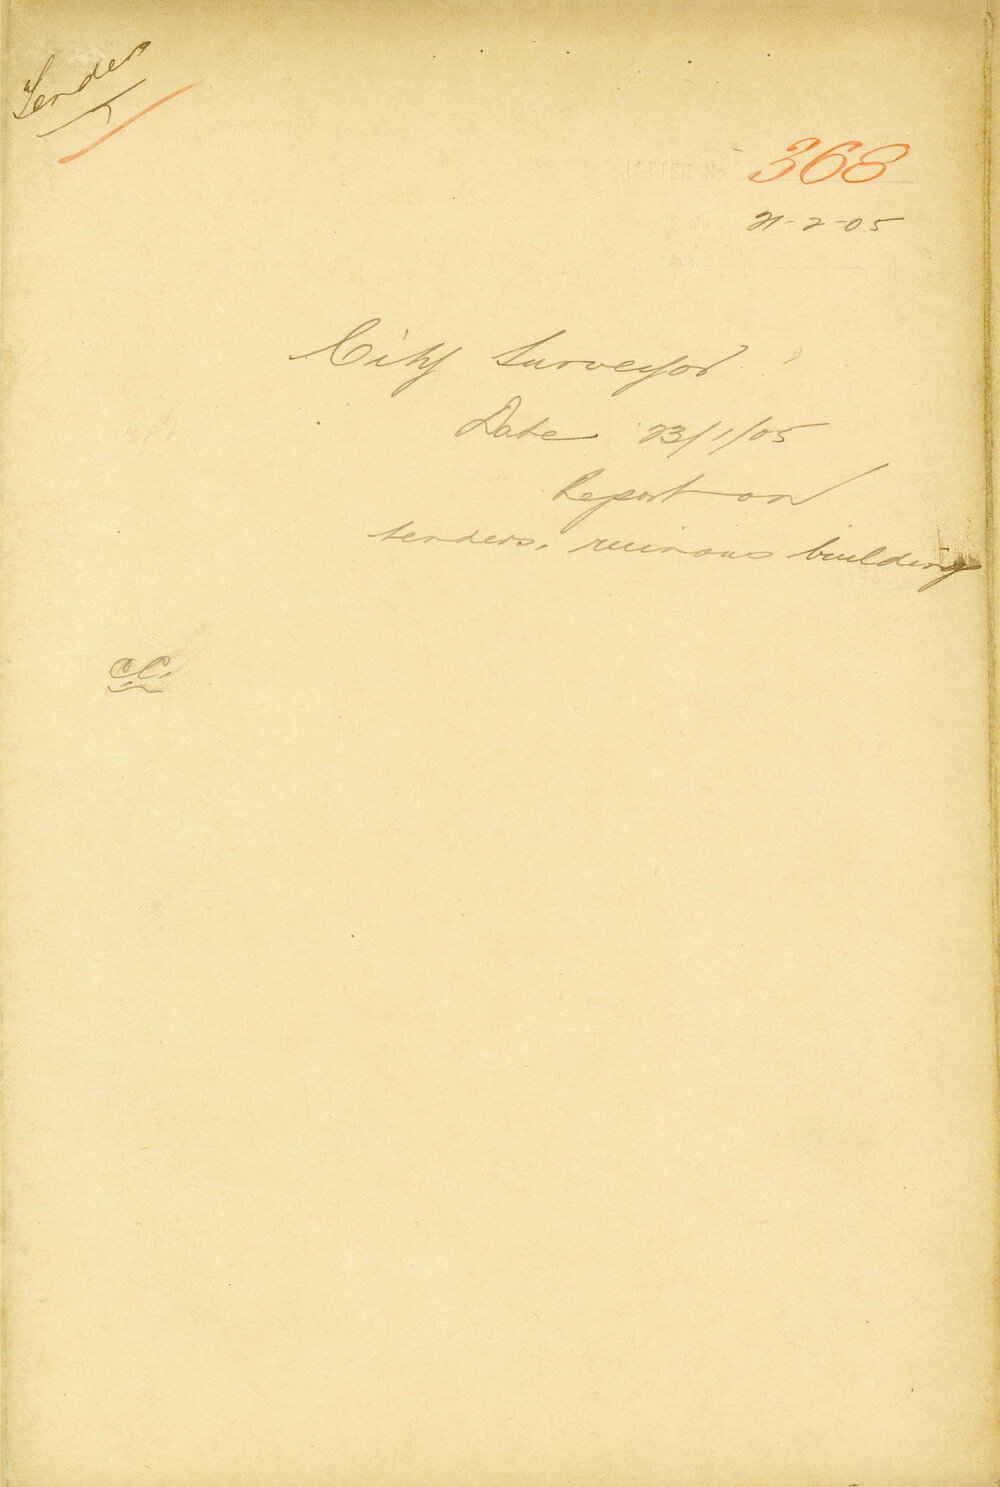 Tenders
368
21-2-05
City Surveyor
Date 23/1/05
Report on
tenders, ruinous building